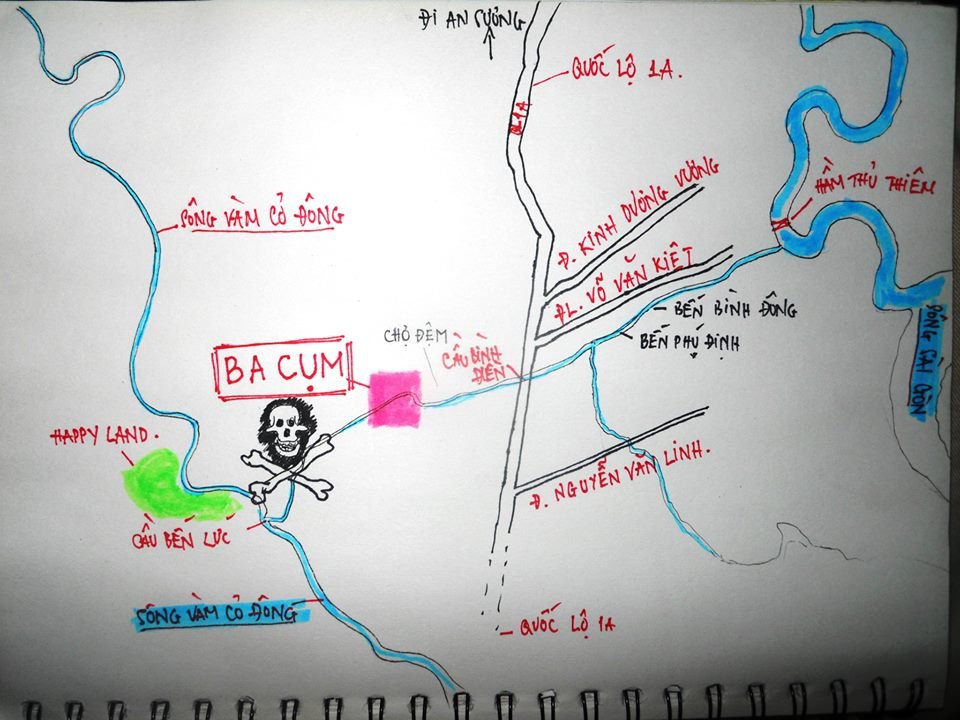 ĐI AN SƯƠNG
QUỐC LỘ 1A.
QL1A
HẦM THỦ THIÊM
Đ. KINH DƯƠNG VƯƠNG
SÔNG VÀM CỎ ĐÔNG
ĐL. VÕ VĂN KIỆT
BẾN BÌNH ĐÔNG
BẾN PHÚ ĐỊNH
SÔNG SÀI GÒN
CHỢ ĐỆM
CẦU BÌNH
ĐIỀN
BA CỤM
HAPPY LAND.
Đ. NGUYỄN VĂN LINH.
CẦU BẾN LỨC
SÔNG VÀM CỎ ĐÔNG
QUỐC LỘ 1A